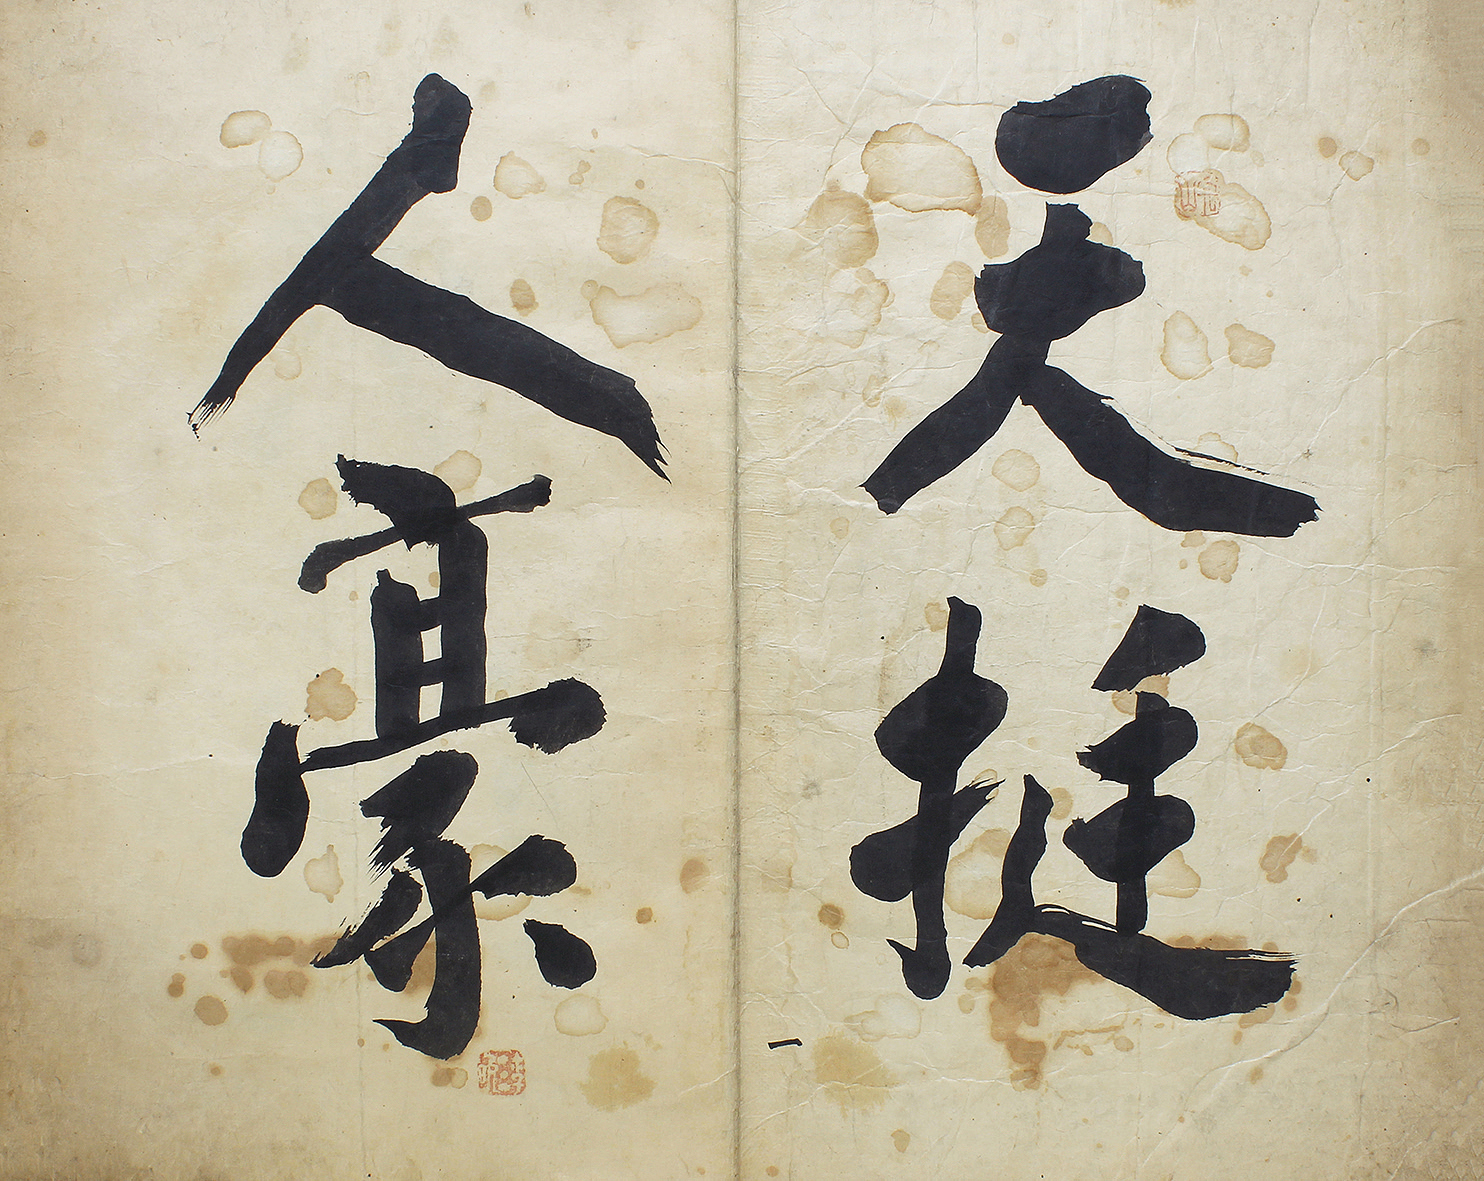 天挺
人豪
一